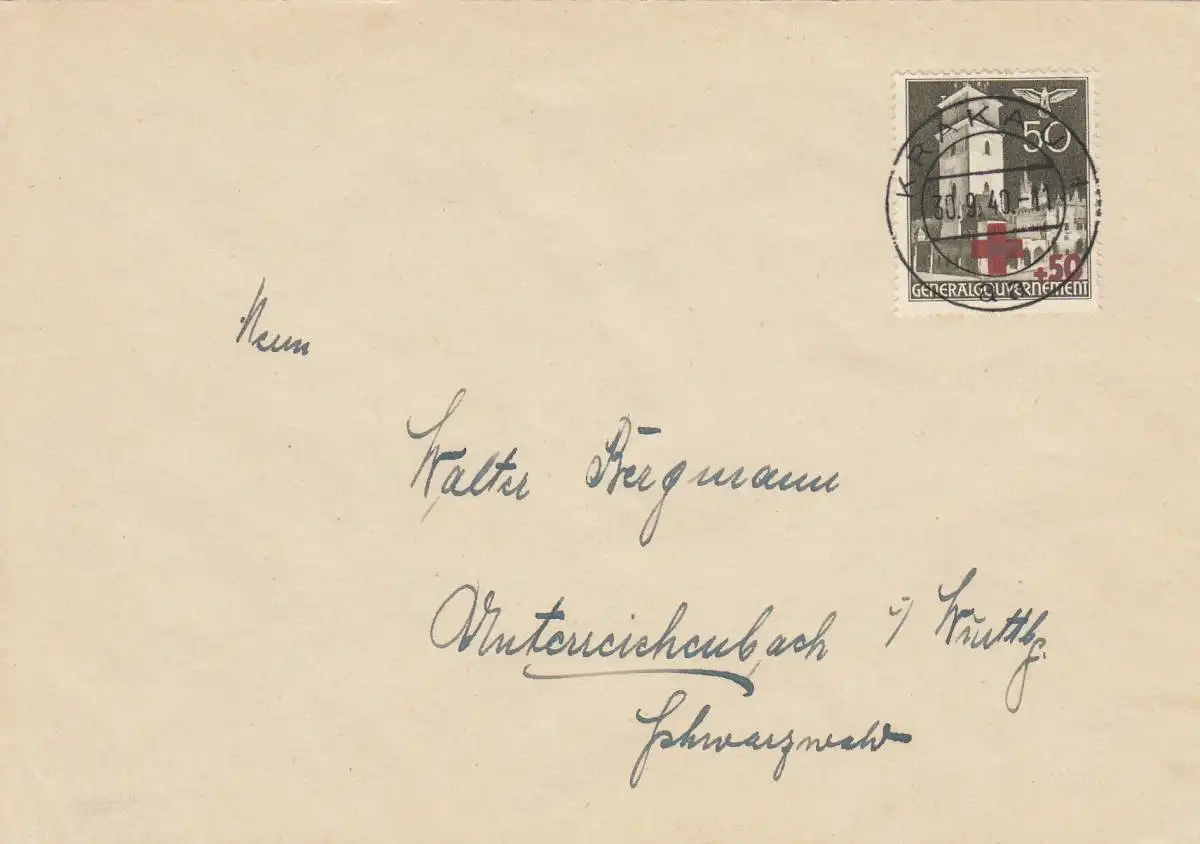 50
KRAKAU 1
30.9.40.-11
+50
GENERALGOUVERNEMENT
Herrn
Walter Bergmann
Unterreichenbach i/ Württbg.
Schwarzwald